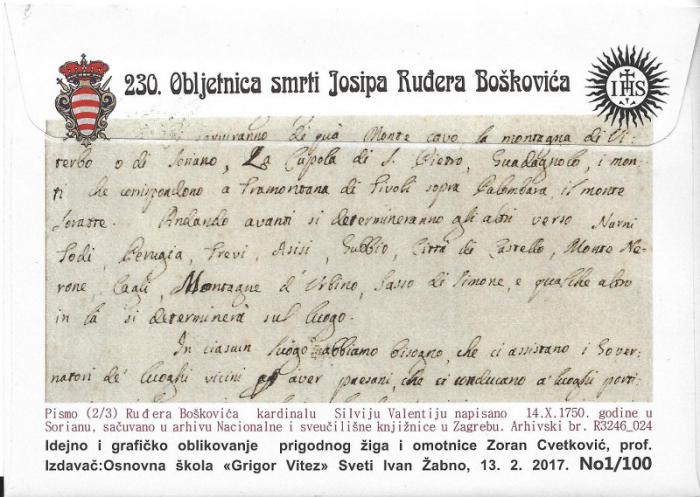 230. Obljetnica smrti Josipa Ruđera Boškovića
IHS
serviranno di quà Monte cavo la montagna di Vi-
terbo o di Soriano, La Cupola di S. Pietro, Guadagnolo, i mon-
ti che corrispondono a Tramontana di Tivoli sopra Palombara, il monte
Soratte. Andando avanti si determineranno gli altri verso Narni
Todi, Perugia, Trevi, Asisi, Gubbio, Città di Castello, Monte Ne-
rone, Cagli, Montagne d'Urbino, Sasso di Simone, e qualche altro
in là si determinerà sul luogo.
In ciascun luogo abbiamo bisogno, che ci assistano i Gover-
natori de' luoghi vicini aver paesani, che ci conducano a' luoghi porti-
Pismo (2/3) Ruđera Boškovića kardinalu Silviju Valentiju napisano 14.X.1750. godine u
Sorianu, sačuvano u arhivu Nacionalne i sveučilišne knjižnice u Zagrebu. Arhivski br. R3246_024
Idejno i grafičko oblikovanje prigodnog žiga i omotnice Zoran Cvetković, prof.
Izdavač:Osnovna škola «Grigor Vitez» Sveti Ivan Žabno, 13. 2. 2017. No1/100